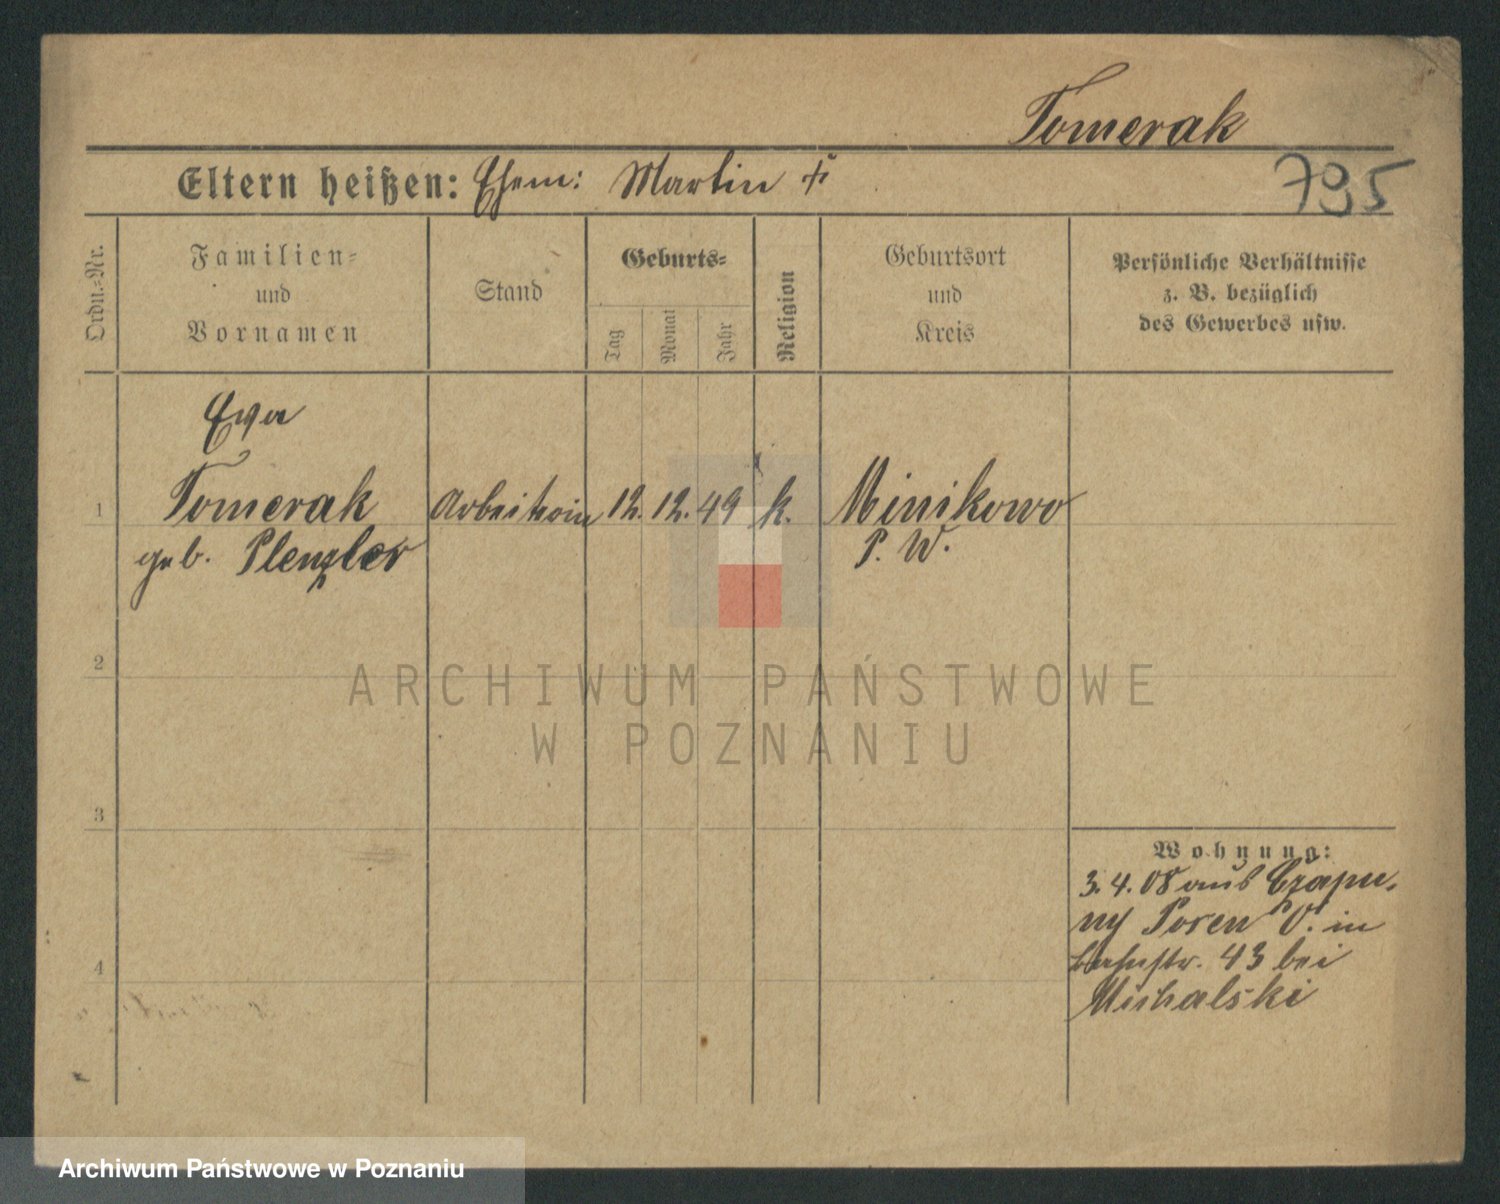 Tomerak
795
Eltern heißen: Ehem: Martin †
Ordn.-Nr.
Familien-
und
Vornamen
Stand
Geburts-
Tag
Monat
Jahr
Religion
Geburtsort
und
Kreis
Persönliche Verhältnisse
z. B. bezüglich
des Gewerbes usw.
Eva
1 Tomerak Arbeiterin 12. 12. 49 k. Minikowo
geb. Plenzler P. W.
2
3
4
Wohnung:
3.4.08 aus Czapu-
ry Posen O. in
Bahnstr. 43 bei
Michalski
ARCHIWUM PAŃSTWOWE
W POZNANIU
Archiwum Państwowe w Poznaniu